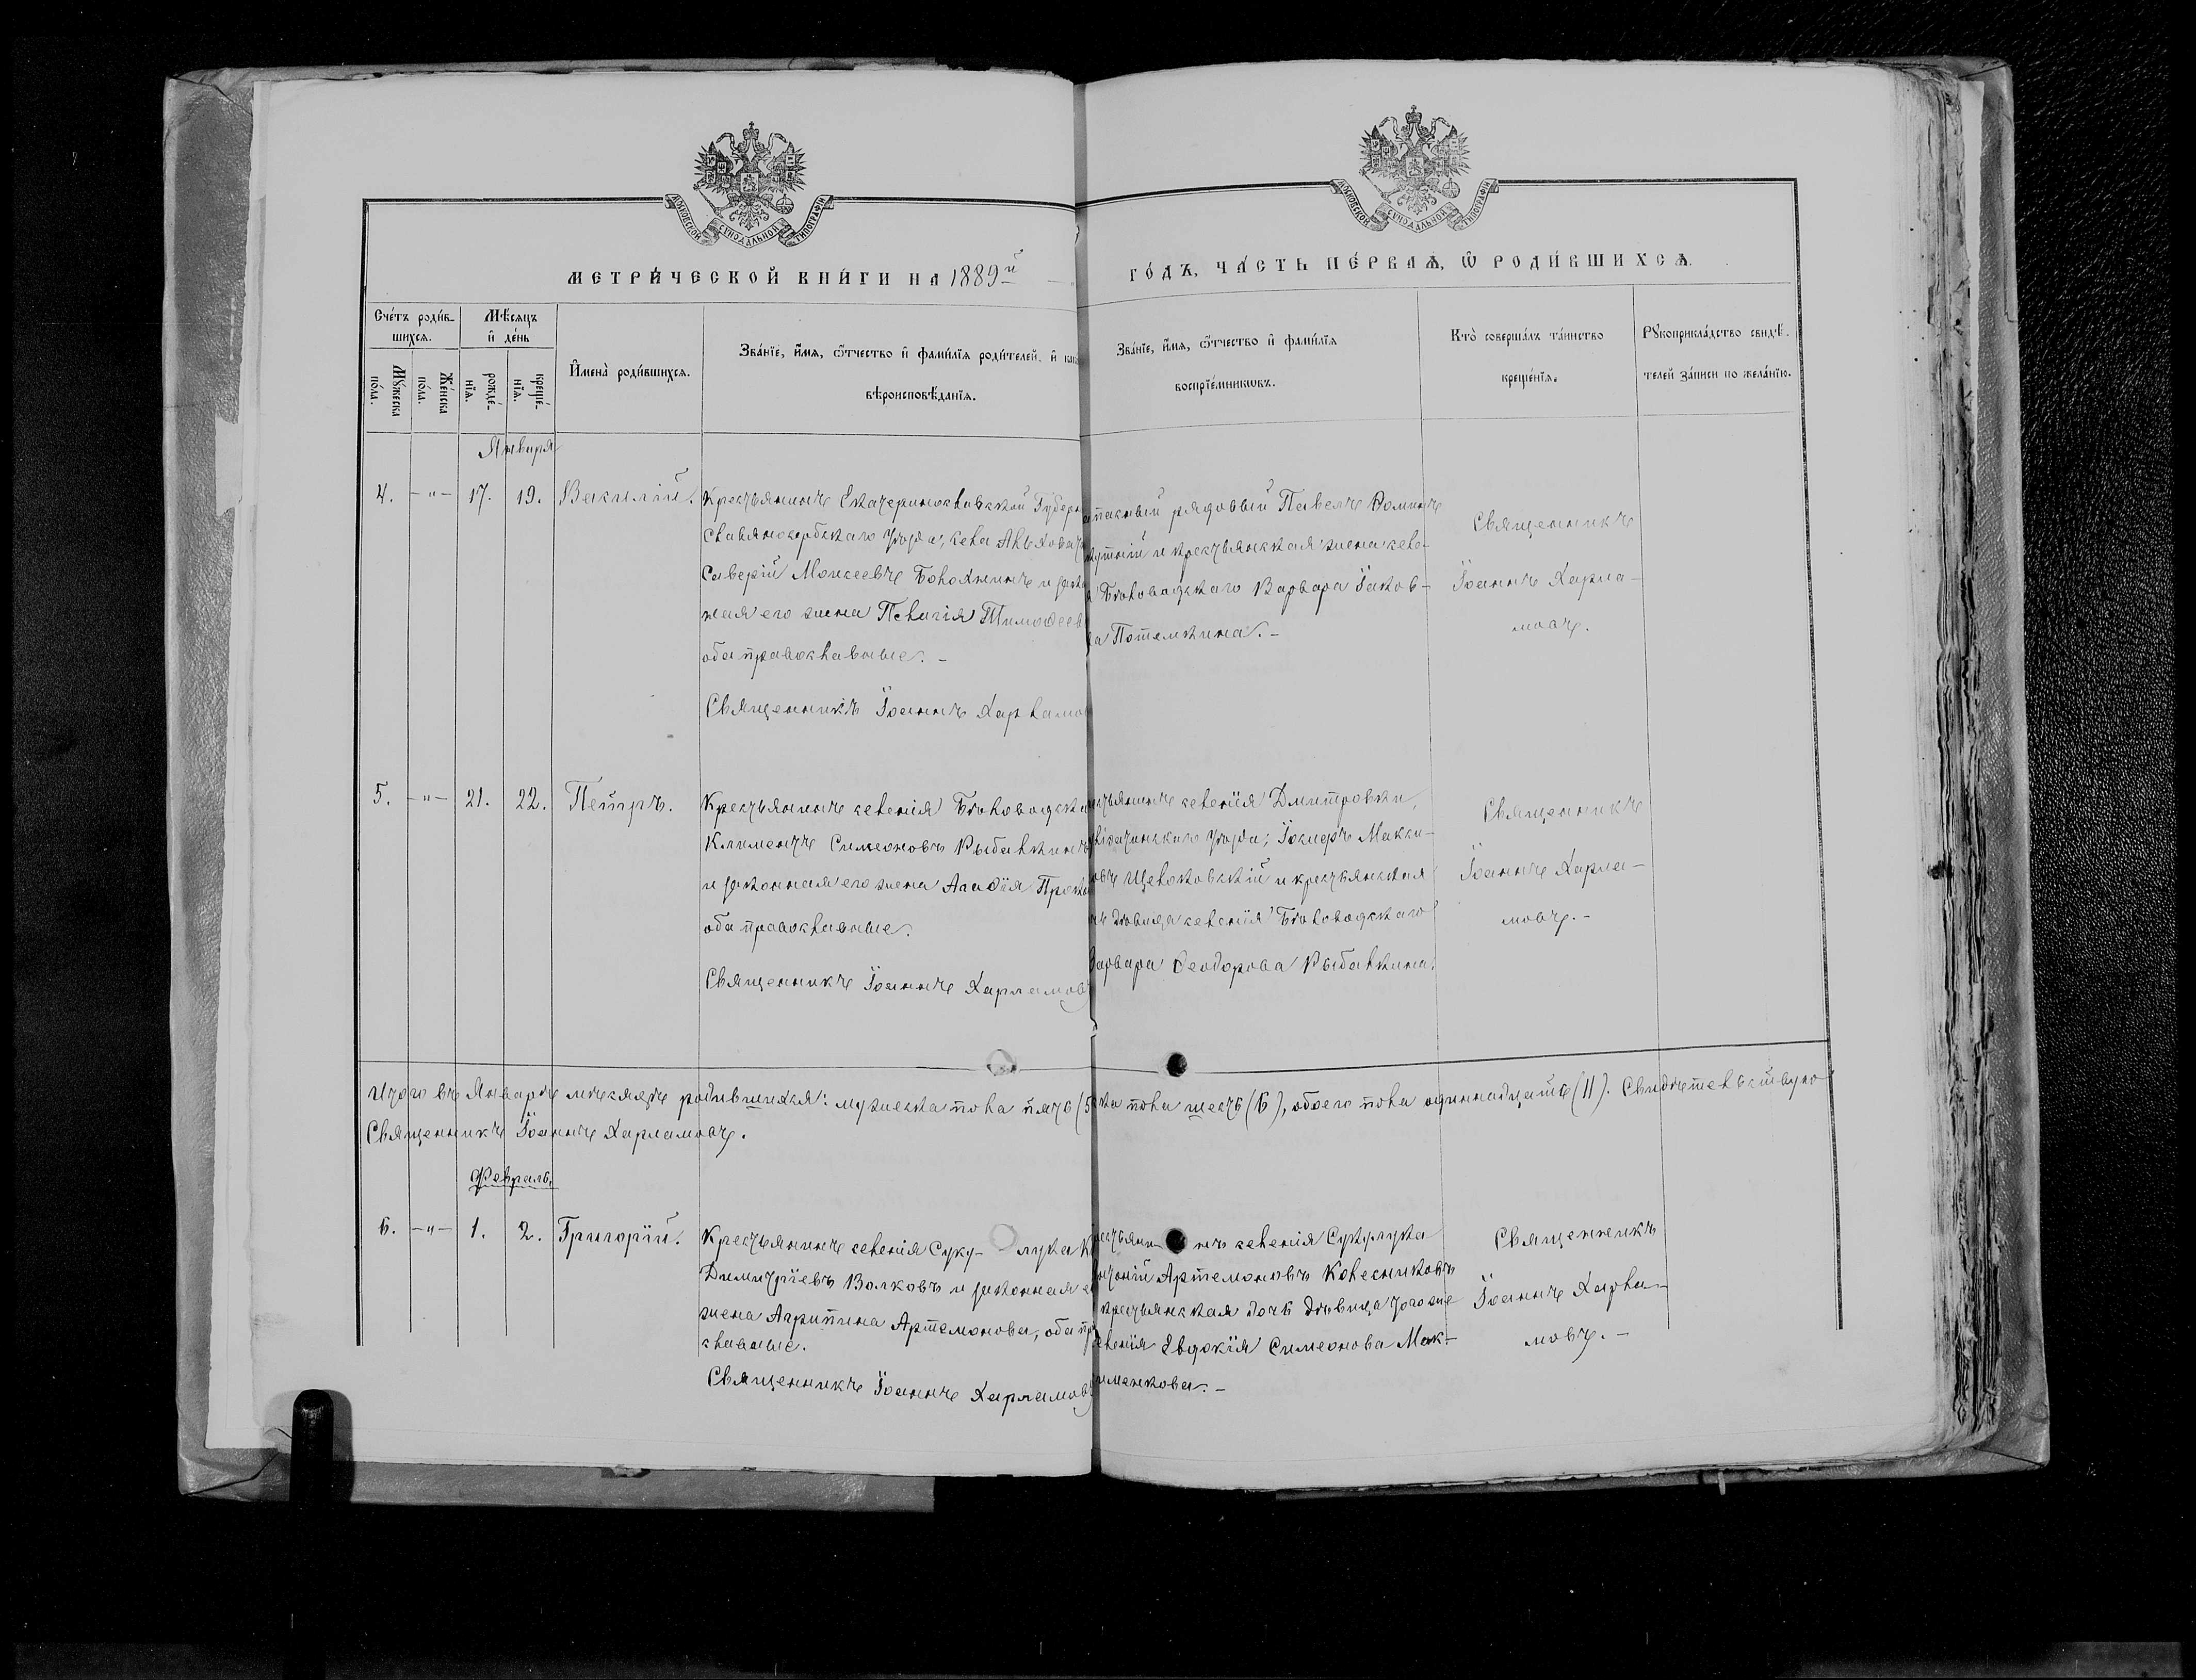 МОСКОВСКОЙ СУНОДАЛЬНОЙ ТИПОГРАФІИ
МОСКОВСКОЙ СУНОДАЛЬНОЙ ТИПОГРАФІИ
МЕТРИ́ЧЕСКОЙ КНИ́ГИ НА 1889й
ГО́ДЪ, ЧА́СТЬ ПЕ́РВАѦ, Ѡ҆ РОДИ́ВШИХСѦ.
Сче́тъ роди́в-
шихсѧ.
Мѣ́сѧцъ
и҆ де́нь
Мꙋ́жеска по́ла.
Же́нска по́ла.
рожде́-
нїѧ.
креще́-
нїѧ.
И҆мена̀ роди́вшихсѧ.
Зва́нїе, и҆́мѧ, ѻ҆́тчество и҆ фами́лїѧ роди́телей, и҆
вѣроисповѣ́данїѧ.
Зва́нїе, и҆́мѧ, ѻ҆́тчество и҆ фами́лїѧ
воспрїе́мникѡвъ.
Кто̀ соверша́лъ та́инство
креще́нїѧ.
Рꙋкоприкла́дство свидѣ́-
телей за́писи по жела́нїю.
Января
4. -„- 17. 19. Василій.
Крестьянинъ Екатеринославской Губерн
Славяносербскаго уѣзда, села
Саверій Моисеевъ и закон
ная его жена Пелагія Тимоѳеев
оба православные. -
Священникъ Іоаннъ Харламо
пасный рядовый Павелъ Ѳоминъ
и крестьянская жена селе-
Бѣловодскаго Варвара Іаков-
ва Потемкина. -
Священникъ
Іоаннъ Харла-
мовъ.
5. -„- 21. 22. Петръ.
Крестьянинъ селенія Бѣловодска
Климентъ Симеоновъ Рыбалкинъ
и законная его жена Агаѳія Проко
оба православные.
Священникъ Іоаннъ Харламов
стьянинъ селенія Дмитровки,
уѣзда; Іосифъ Макси-
овъ Щелоковскій и крестьянская
чь дѣвица селенія Бѣловодскаго
Варвара Ѳеодорова Рыбалкина.
Священникъ
Іоаннъ Харла-
мовъ. -
Итого въ Январѣ мѣсяцѣ родившихся: мужеска пола пять (5
ска пола шесть (6), обоего пола одиннадцать (11). Свидѣтельствую
Священникъ Іоаннъ Харламовъ.
Февраль.
6. -„- 1. 2. Григорій.
Крестьянинъ селенія Суку- лука
Димитріевъ Волковъ и законная е
жена Агрипина Артемонова, оба пр
славные.
Священникъ Іоаннъ Харламов
рестьянинъ селенія Сукулука
Артемоновъ Колесниковъ
крестьянская дочь дѣвица того же
селенія Евдокія Симеонова Мак-
именкова. -
Священникъ
Іоаннъ Харла-
мовъ. -